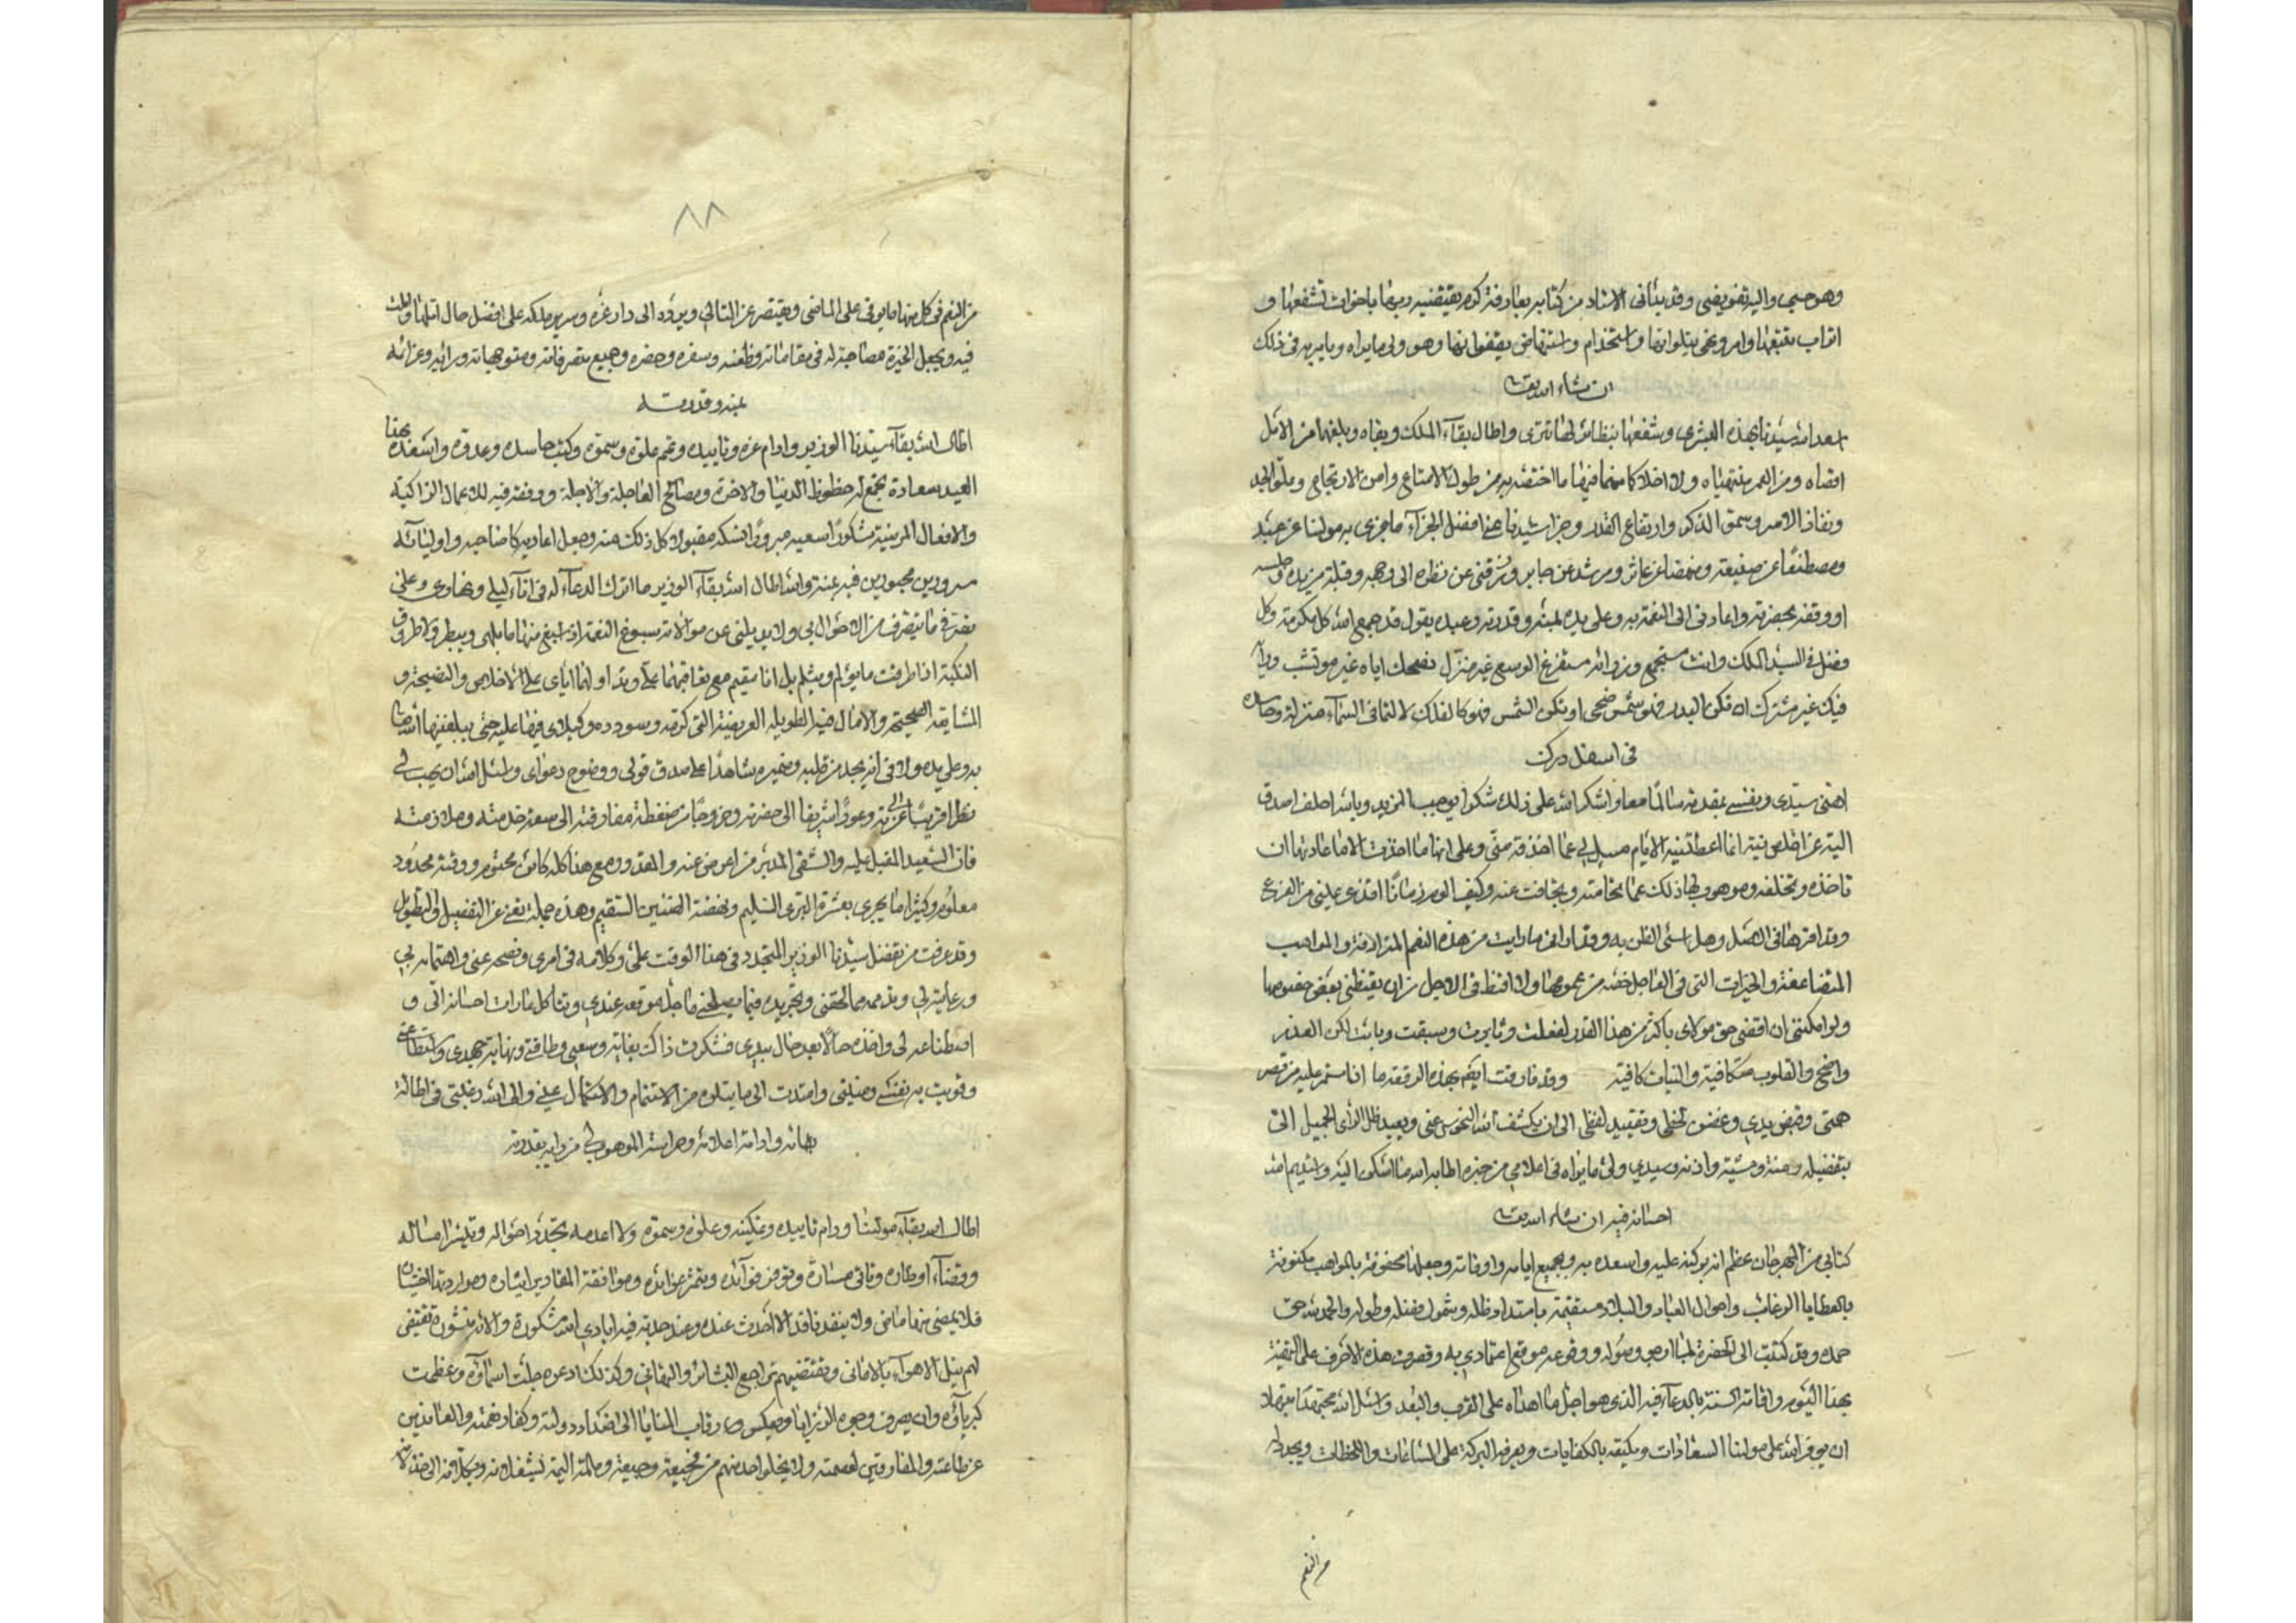 وهو حسبي واليه تفويضي وقد يتأنى الاستاد من كتابه بعارفة كرم يقتضيه ربها باخوات تشفعها و
اتراب تتبعها وامر ونهي يتلوانها واستخدام واستنهاض يقفوانها وهو ولي ما يراه ويامر به في ذلك
ان شاء الله تعالى
اسعد الله سيدنا بهذه البشرى وشفعها بنظائر لها تترى واطال بقاء الملك وبقاه وبلغهما من الامل
اقصاه ومن العمر منتهياه ولا اخلاكما منهما فيما اختصه به من طول الامتاع وامن الارتجاع وعلو الجد
ونفاذ الامر وسمو الذكر وارتفاع القدر وجزا سيدنا عنا افضل الجزاء ما جزى به مولنا عن عبد
ومصطنعا عن صنيعة ومنهضا عن عاثر ومرشد عن حاير ورزقني عن نظره الى وجهه وقبلة من يده وجلسه
او وقفه بحضرته واعادني الى النعمة به وعلى يده بمنه وقدرته وعبده يقول قد جمع الله كل مكرمة وكل
فضل في السيد الملك وانت مستجمع
فيك غير مشترك ان تكن البدر فهو شمس ضحى او تكن الشمس فهو كالفلك لا زلتما في السماء منزلة وحاسد
في اسفل درك
اهنئ سيدي ونفسي بمقدمه سالما معا واشكر الله على ذلك شكرا يوجب المزيد وبالله احلف اصدق
الية عن اخلص نية انما اعطتنيه الايام مسل لي عما اخذته مني وعلى انها ما اخذت الا ما عادتها ان
تاخذه وتخلفه وموهوب لها ذلك
وقد اقرها في النصل وهل اسئ الظن به وقد اراني ما رايت من هذه النعم المترادفة والمواهب
المتضاعفة والخيرات التي في العاجل خصه من عمومها ولا اقنط في الاجل من ان يغبطني بعض خصوصها
ولو امكنني ان اقضي حق مولاي باكثر من هذا القدر لفعلت وثابرت وسبقت وبادرت لكن العذر
واضح والقلوب متكافية والنيات كافية وقد فارقت ايهم بهذه الرقعة ما انا مستمر عليه من قصر
همتي وقبض يدي وغض لحظي وتقييد لفظي الى ان يكشف الله النحوس عني ويعيد ظل الراى الجميل الى
بتفضيله ومنه ومشيته واذنه وسيدي ولي ما يراه في اعلامي من خبره اطابه الله ما اشكر اليه واستديم الله
احسانه فيه ان شاء الله تعالى
كتابي من المهرجان عظم الله بركته عليه واسعده به وبجميع ايامه واوقاته وجعلها محفوفة بالمواهب مكنوفة
بالعطايا الرغائب واحوال العباد والبلاد مستقيمة بامتداد ظله وشمول فضله وطوله والحمد لله حق
حمده وقد كتبت الى الحضرة وقصرت هذه الاحرف على التهنئة
بهذا اليوم واقامة السنة بالدعاء فيه الذي هو اجل ما اهداه على القرب والبعد واسئل الله مجتهدا مبتهلا
ان يوفر الله على مولنا السعادات ويكنفه بالكفايات ويعرفه البركة على الساعات واللحظات ويجدد له
من النعم
٨٨
من النعم في كل منها ما يوفي على الماضي ويقتصر عن التالي ويرده الى دار عزه وسرير ملكه على افضل حال املها واملت
فيه ويجعل الخيرة مصاحبة له في مقاماته وظعنه وسفره وحضره وجميع متصرفاته ومتوجهاته وراياته وعزائمه
بمنه وقدرته
اطال الله بقاء سيدنا الوزير وادام عزه وتاييده ونعم علوه وسموه وكبت حاسده وعدوه واسعده بهذا
العيد سعادة تجمع له حظوظ الدنيا والاخرة ومصالح العاجلة والاجلة ووفقه فيه للاعمال الزاكية
والافعال المرضية مشكورا سعيه مبرورا نسكه مقبولا كل ذلك منه وجعل اعاديه كاضاحيه واوليائه
مسرورين محبورين فيه بمنه وانا اطال الله بقاء الوزير ما اترك الدعاء له في اناء ليلي ونهاري وعلى
تفرق ما يتصرف من الاحوال بي ولا يديلني عن موالاته سبوغ النعمة اذا سبغ منها ما يلهي ويبطر ولا طروق
النكبة اذا طرقت ما يؤلم ويثلم بل انا مقيم مع تعاقبهما علي وتداولهما اياي على الاخلاص والنصيحة و
المشايعة الصحيحة والامال فيه الطويلة العريضة التي كرمه وسودده وكيلاي فيها عليه حتى يبلغنيها الله تعالى
به وعلى يده ولا في انه يجد من قلبه وضميره شاهدا على صدق قولي ووضوح دعواي واسئل الله ان يهب لي
نظرا قريبا من الى عزته وعودا شريفا الى حضرته وخروجا من ضغطة مفارقته الى سعة خدمته وملازمته
فان السعيد المقبل عليه والشقي المدبر من اعرض عنه والمقدور مع هذا كله كاس محتوم ووقت محدود
معلوم وكثيرا ما يجري بعثرة البري السليم ونهضة الضنين السقيم وهذه جملة تغني عن التفصيل والتطويل
وقد عرفت من تفضل سيدنا الوزير المتجدد في هذا الوقت علي وكلامه في امري ونضحه عني واهتمامه بي
ورعايته لي وتذممه مما لحقني وتجريده فيما يصلحني ما جل موقعه عندي وشاكل عادات احسانه الي و
اصطناعه لي واخذه حالا بعد حال بيدي فشكرت ذاك بغاية وسعي وطاقتي ونهاية جهدي واستطاعتي
وقويت به نفسي ومنيتي وامتدت الى ما يتلوه من الاستتمام والاكتمال عيني والى الله رغبتي في اطالة
بقائه وادامة اعلائه وحراسة الموهوب لي من رايه بقدرته
اطال الله بقاء مولنا ودام تاييده وتمكينه وعلوه وسموه ولا اعدمه تجدد احواله وتيسر اماله
وقضاء اوطاره وتاتي مساره وتوفر فوائده وتثمر عوائده وموافقة المقادير ايثاره ومواردتها اختياره
فلا يمضي منها ماض ولا ينفد نافد الا احدث عنده وعند خدمته فيه ايادي الله مشكورة والائه منشورة تقتضي
لهم بنيل الاهواء بالاماني وتقتضيهم تراجع البشائر والتهاني وكذلك ادعوه جلت اسماؤه وعظمت
كبرياؤه وان يصرف وجوه الرزايا ويعكس رقاب المنايا الى اضداد دولته وكفار نعمته والعاندين
عن طاعته والمفارقين لعصمته ولا يخلو احد منهم من فجيعة وجيعة وملمة اليمة